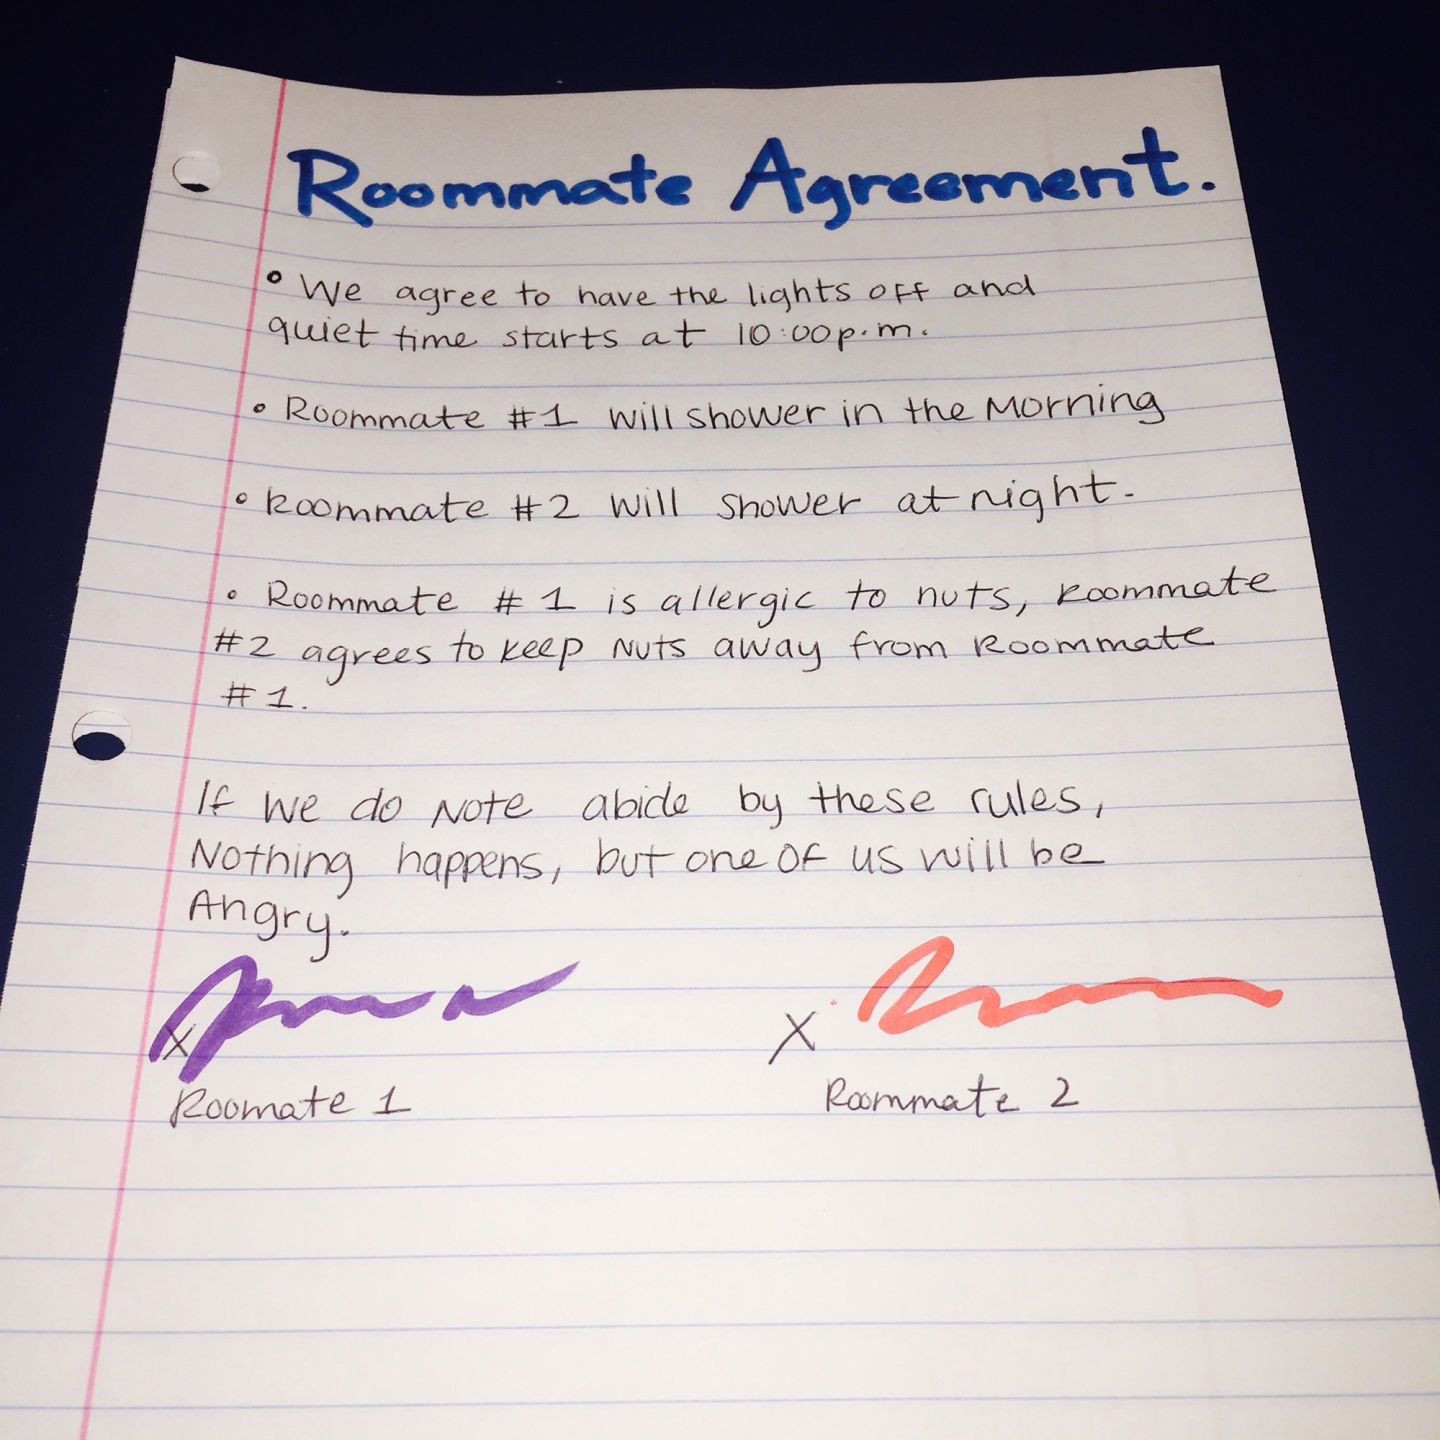 Roommate Agreement.
• We agree to have the lights off and
quiet time starts at 10:00p.m.
• Roommate #1 will shower in the Morning
• Roommate #2 will shower at night.
• Roommate #1 is allergic to nuts, Roommate
#2 agrees to keep nuts away from Roommate
#1.
If we do Note abide by these rules,
Nothing happens, but one of us will be
Angry.
X X
Roomate 1 Roommate 2